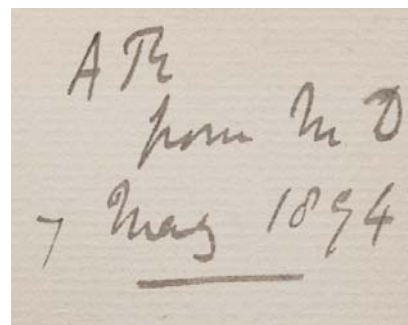 ATR
from M D
7 May 1894